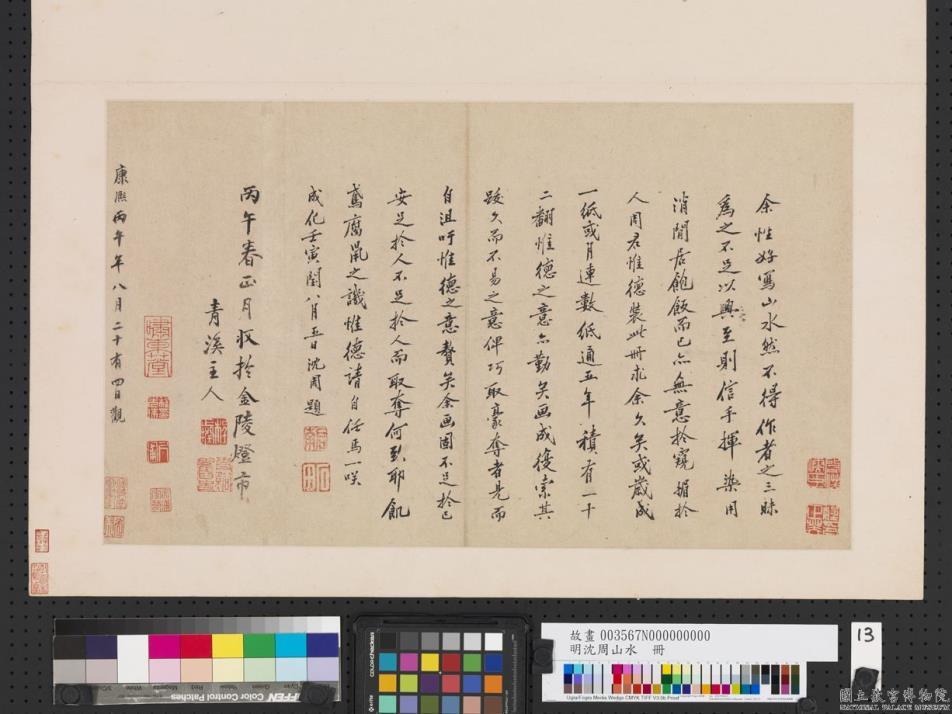 余性好寫山水然不得作者之三昧
為之不足以興至則信手揮染用
消閒居飽飯而已亦無意於窺媚於
人周君惟德裝此冊求余久矣或歲成
一紙或月連數紙通五年積有一十
二翻惟德之意亦勤矣画成復索其
跋久而不易之意俾巧取豪奪者見而
自沮吁惟德之意贅矣余画固不足於己
安足於人不足於人而取奪何到耶飢
鳶腐鼠之譏惟德請自任焉一咲
成化壬寅閏八月五日沈周題
丙午春正月收於金陵燈市
青溪主人
康熙丙午年八月二十有四日觀
故畫 003567N000000000
明沈周山水 冊
13
國立故宮博物院
NATIONAL PALACE MUSEUM
colorchecker
TIFFEN Color Control Patches
Ugra/Fogra Media Wedge CMYK-TIFF V3.0